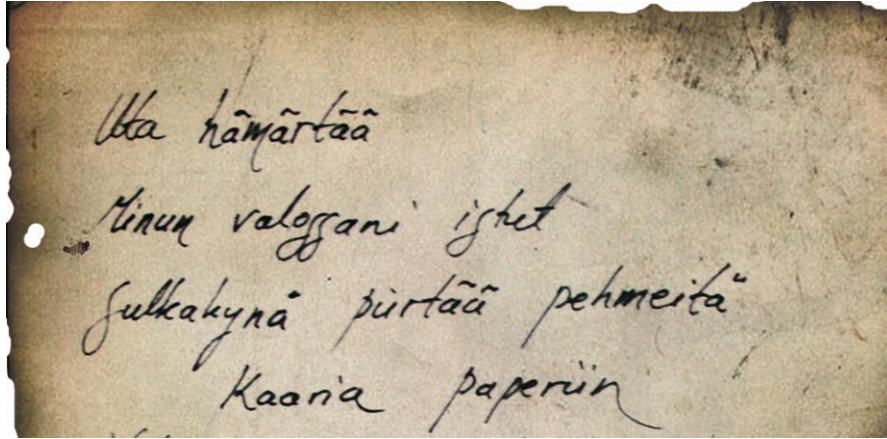 Ilta hämärtää
Minun valossani istut
Sulkakynä piirtää pehmeitä
Kaaria paperiin